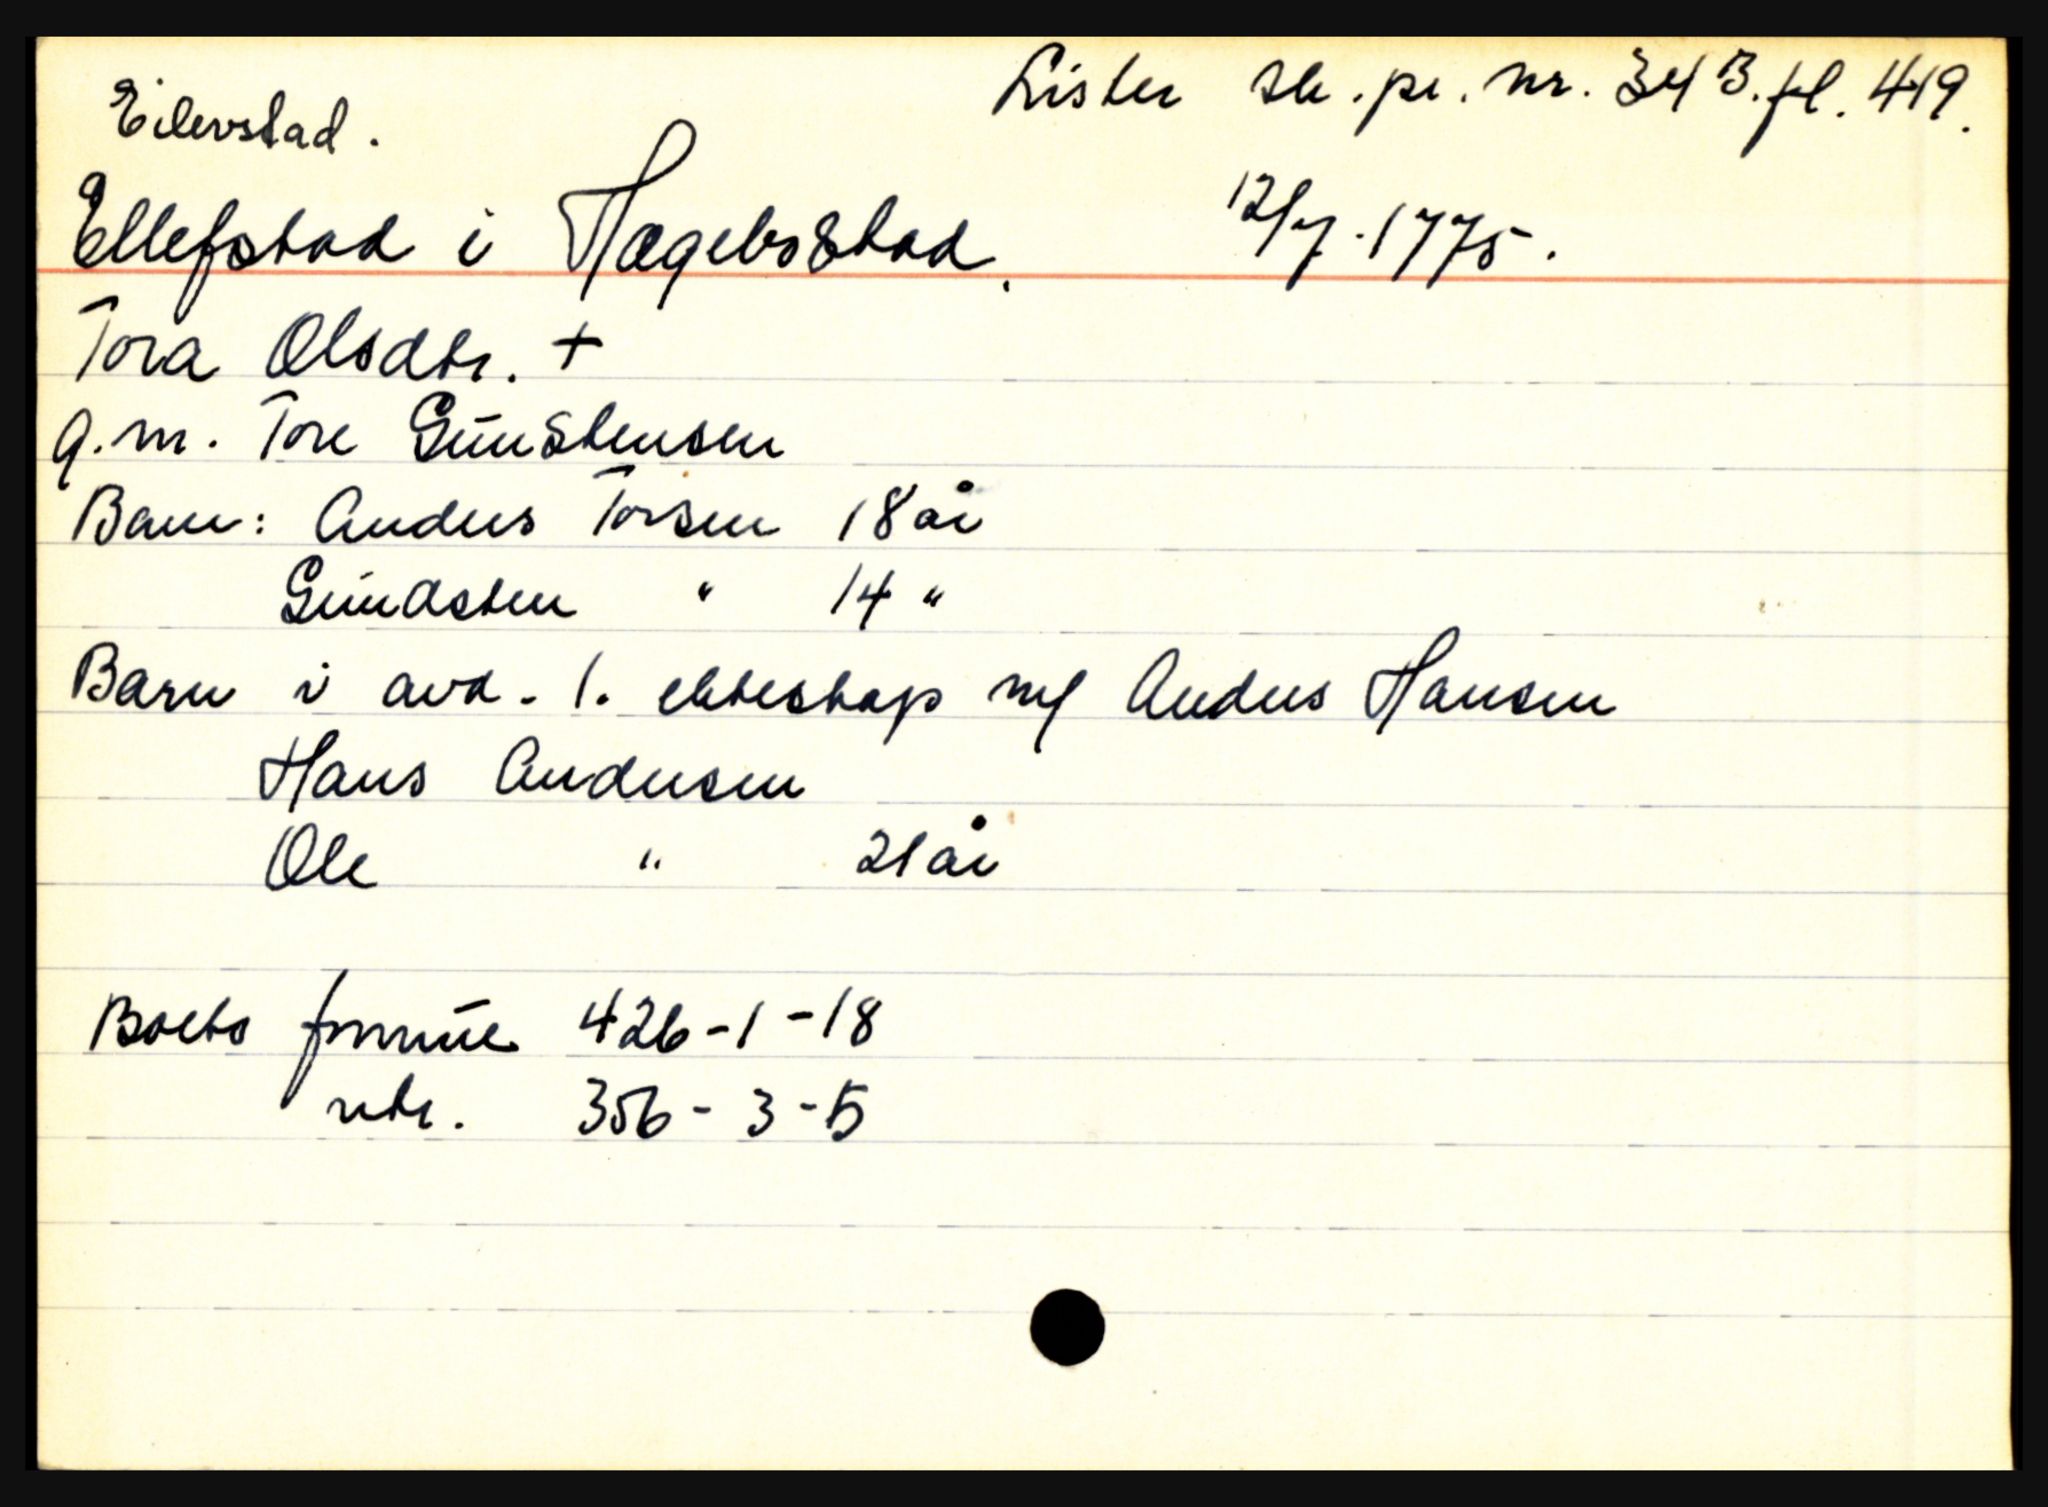 Lister sk. pr. nr. 34 B. fl. 419.
Eilevstad.
Ellefstad i Hægebostad. 12/7. 1775.
Tora Olsdtr. +
g.m. Tore Gunstensen
Barn: Anders Torsen 18 år
Gundsten " 14 "
Barn i avd. 1. ekteskap m/ Anders Hansen
Hans Andersen
Ole " 21 år
Boets formue 426-1-18
ntr. 356-3-5